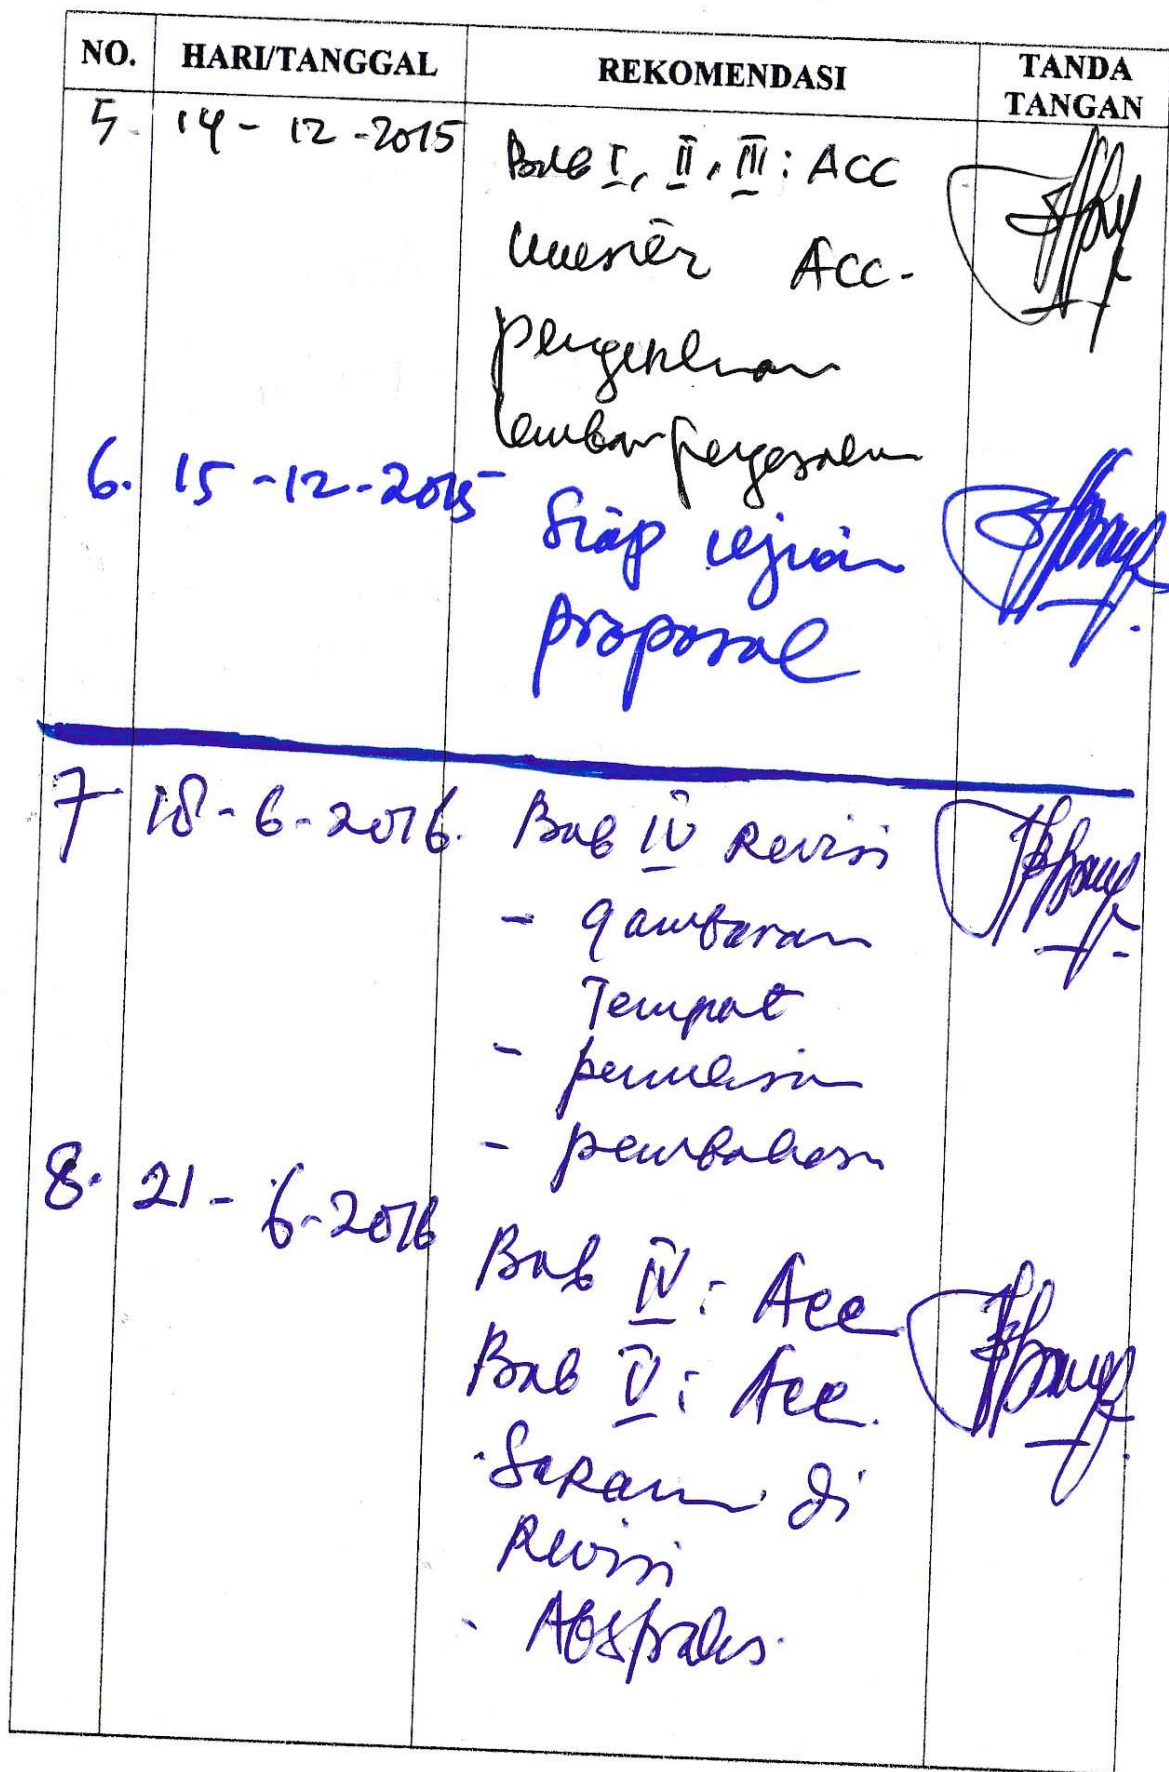 NO. HARI/TANGGAL REKOMENDASI TANDA TANGAN
5. 14 - 12 - 2015 Bab I, II, III : ACC
Acc -
lembar
6. 15 - 12 - 2015 Siap ujian
proposal
7 18 - 6 - 2016. Bab IV Revisi
- gambaran
Tempat
- penulisan
- pembahasan
8. 21 - 6 - 2016
Bab IV : Acc
Bab V : Acc.
- Saran di
Revisi
- Abstrak